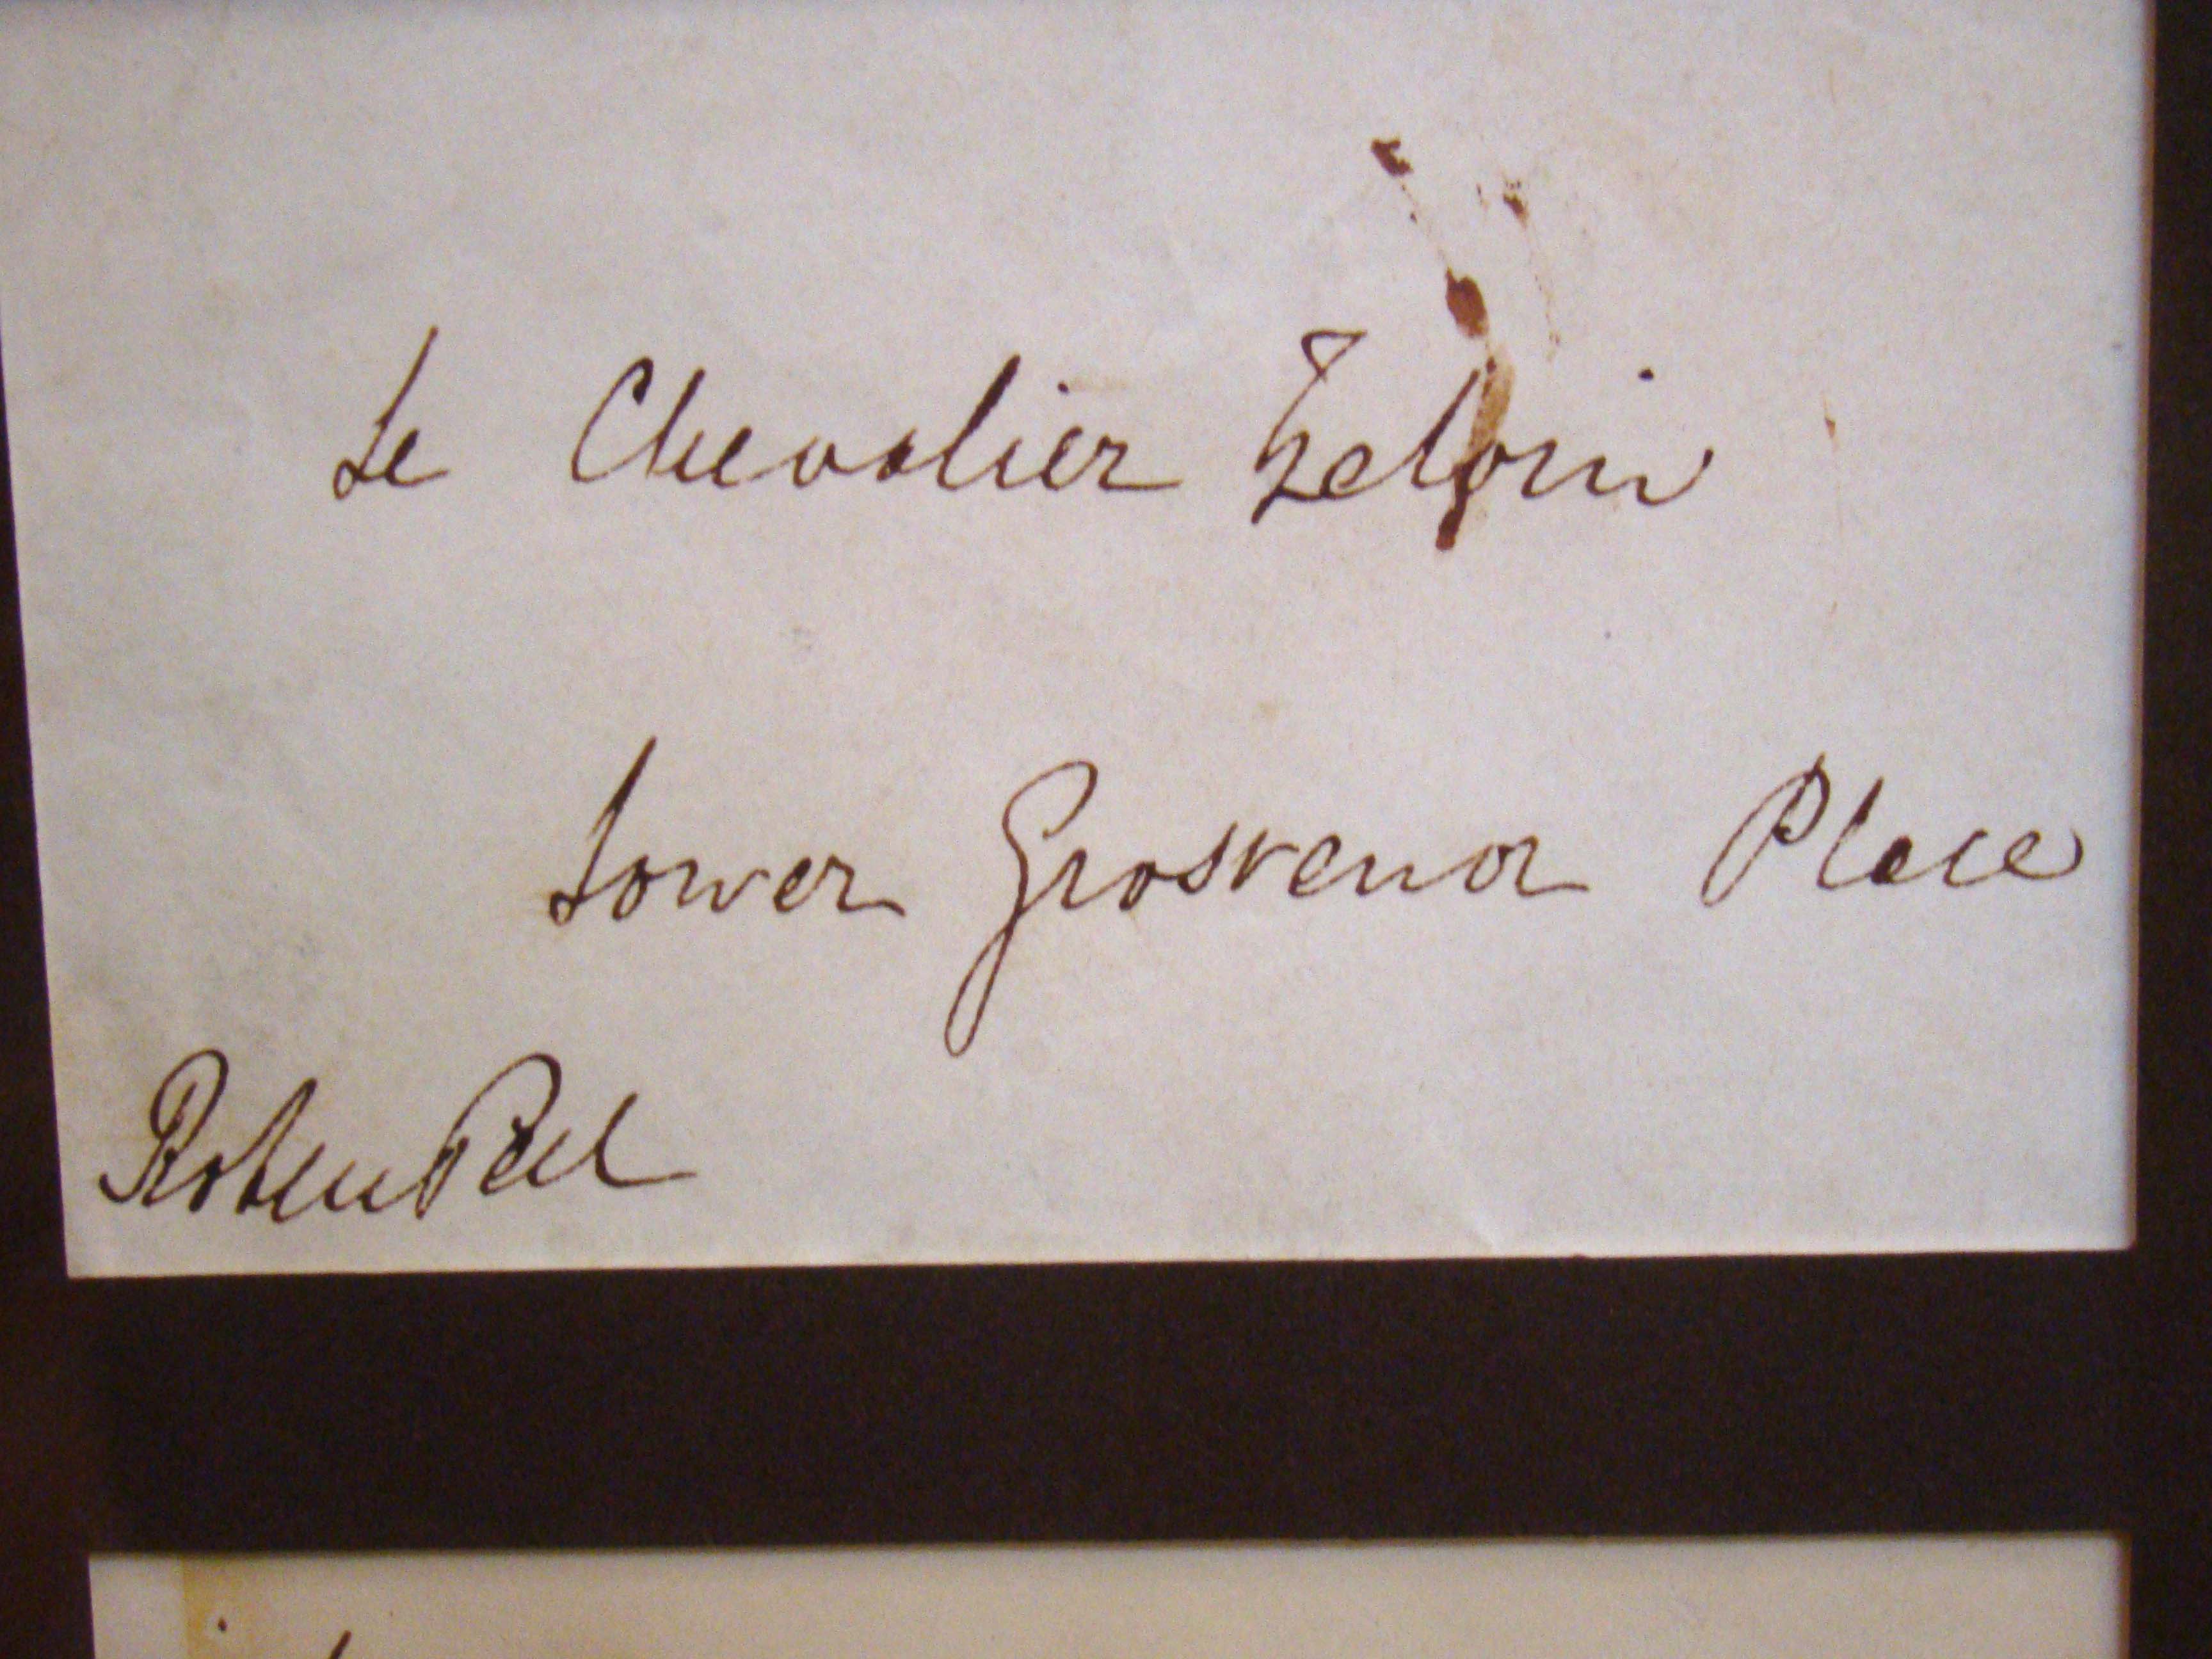 Le Chevalier
Lower Grosvenor Place
Robert Peel